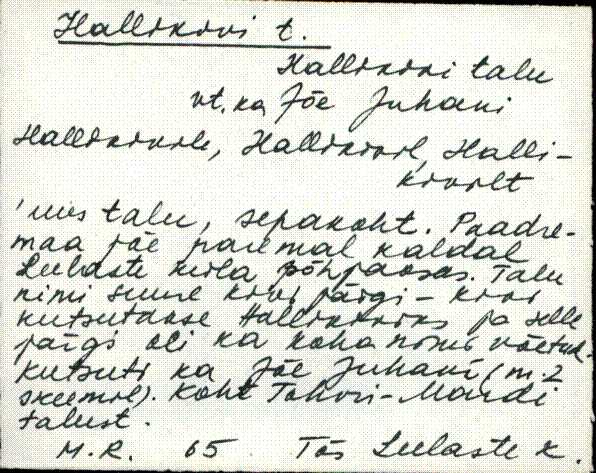 Hallikivi t.
Hallikivi talu
vt. ka Jõe Juhani
Hallikivile, Hallikivil, Halli-
kivilt
uus talu, sepakoht. Paadre-
maa jõe paremal kaldal
Leelaste küla põhjaosas. Talu
nimi suure kivi järgi - kivi
kutsutakse Hallikiviks ja selle
järgi oli ka koha nimi võetud.
Kutsuti ka Jõe Juhani (m. 2
skeemil). Koht Tahvi-Mardi
talust.
M.R. 65 Tõs Leelaste k.